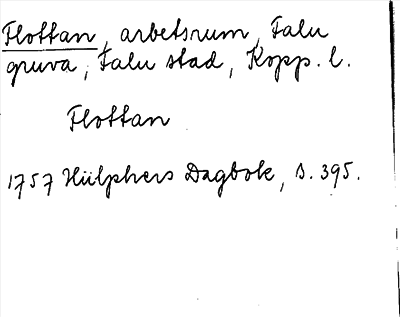 Flottan, arbetsrum, Falu
gruva, Falu stad, Kopp. l.
Flottan
1757 Hülphers Dagbok, s. 395.